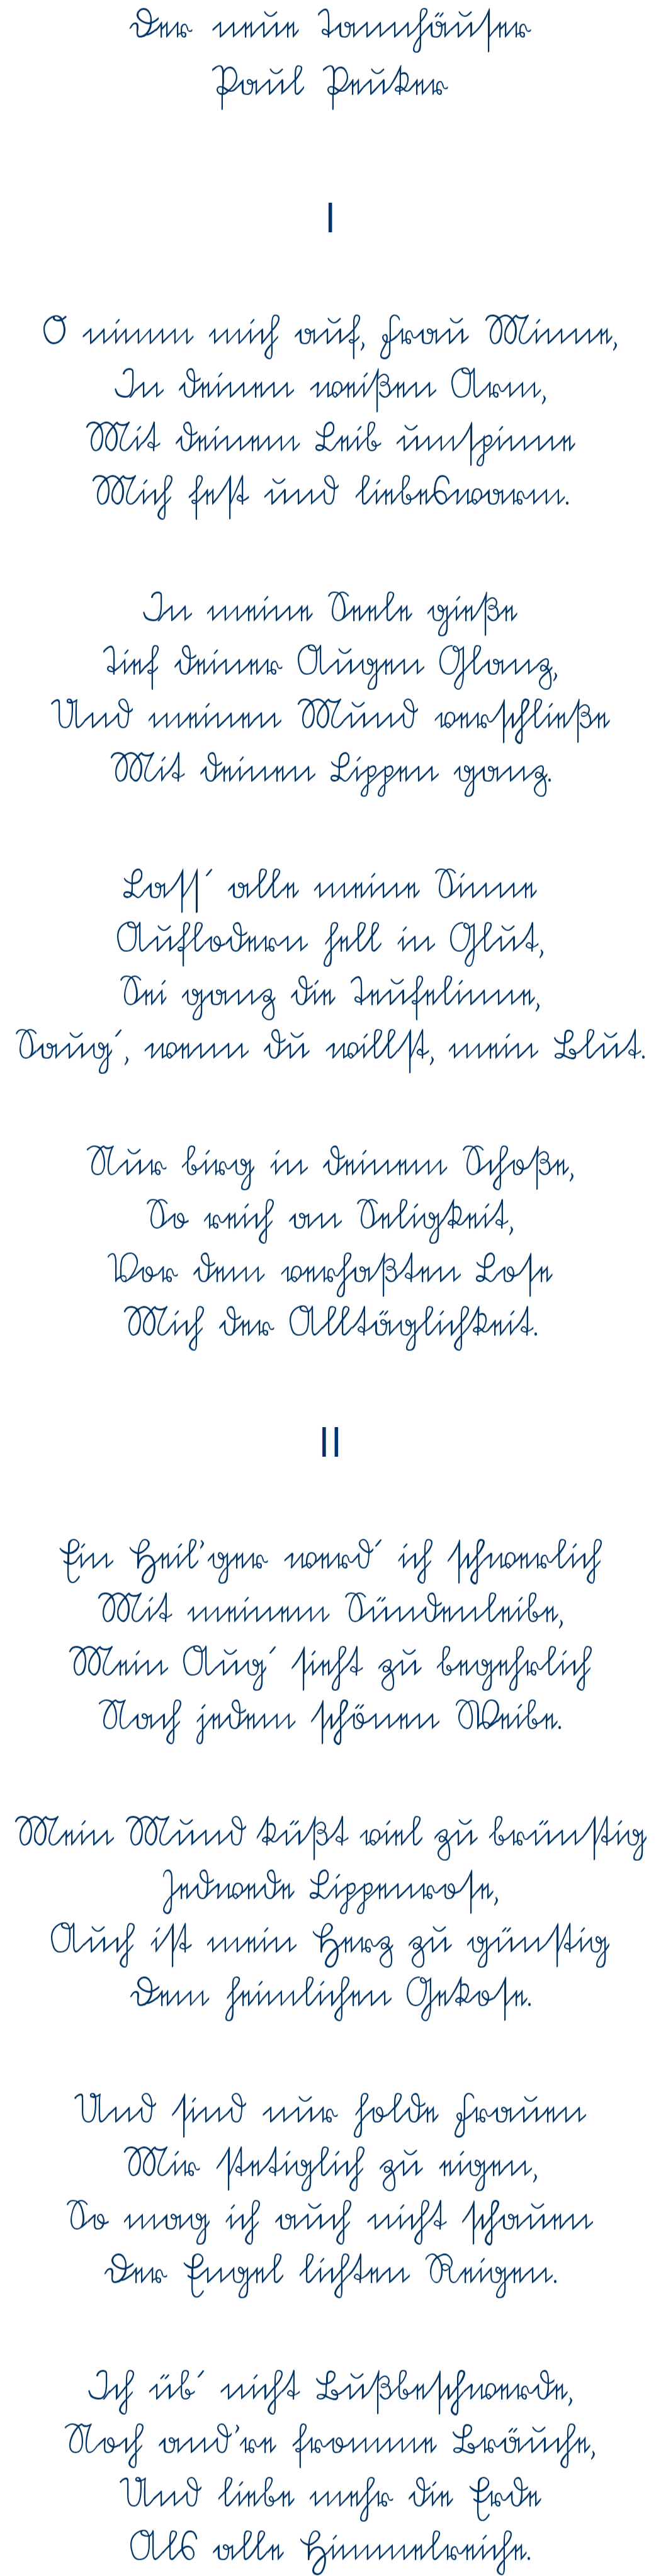 Der neue Tannhäuser
Paul Peuker
I
O nimm mich auf, Frau Minne,
In deinen weißen Arm,
Mit deinem Leib umspinne
Mich fest und liebeswarm.
In meine Seele gieße
Tief deiner Augen Glanz,
Und meinen Mund verschließe
Mit deinen Lippen ganz.
Lass´ alle meine Sinne
Auflodern hell in Glut,
Sei ganz die Teufelinne,
Saug´, wenn du willst, mein Blut.
Nur birg in deinem Schoße,
So reich an Seligkeit,
Vor dem verhaßten Lose
Mich der Alltäglichkeit.
II
Ein Heil'ger werd´ ich schwerlich
Mit meinem Sündenleibe,
Mein Aug´ sieht zu begehrlich
Nach jedem schönen Weibe.
Mein Mund küßt viel zu brünstig
Jedwede Lippenrose,
Auch ist mein Herz zu günstig
Dem heimlichen Gekose.
Und sind nur holde Frauen
Mir stetiglich zu eigen,
So mag ich auch nicht schauen
Der Engel lichten Reigen.
Ich üb´ nicht Bußbeschwerde,
Noch and're fromme Bräuche,
Und liebe mehr die Erde
Als alle Himmelreiche.